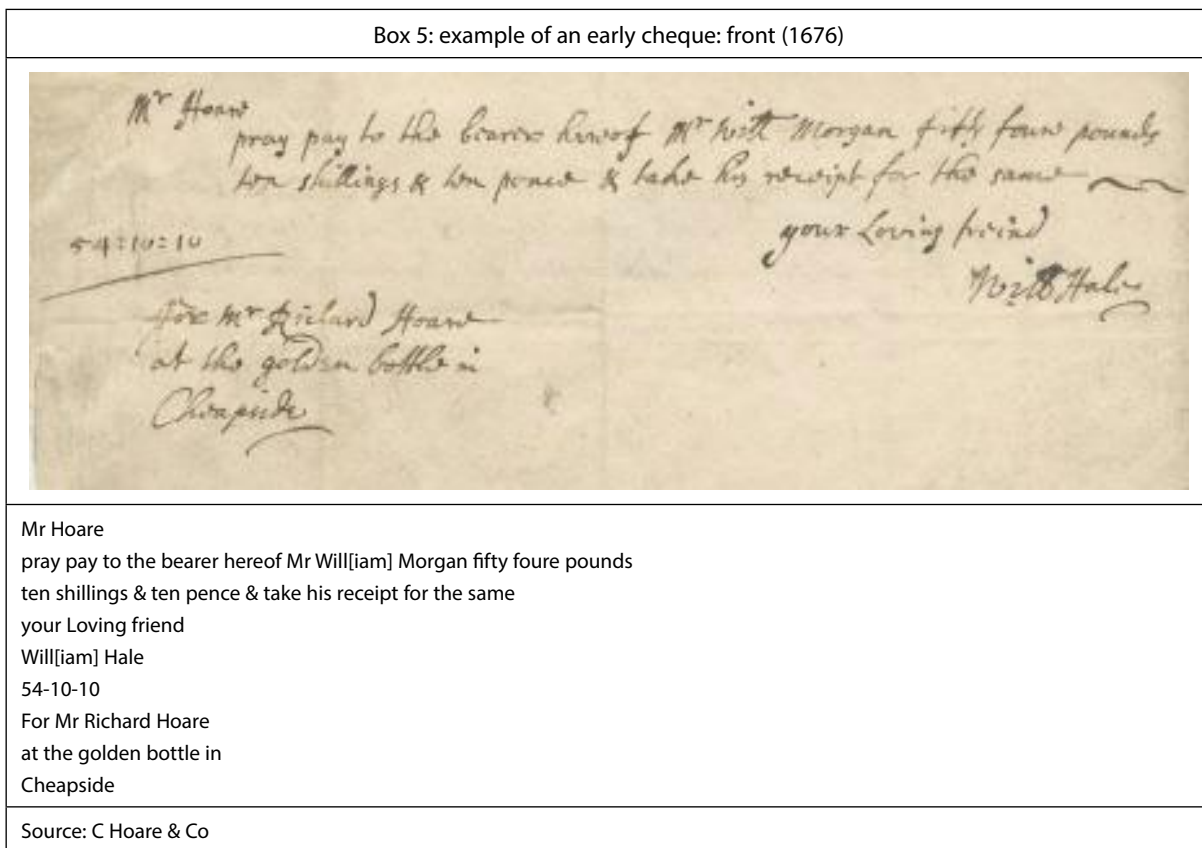 Box 5: example of an early cheque: front (1676)
Mr Hoare
pray pay to the bearer hereof Mr Will Morgan fifty foure pounds
ten shillings & ten pence & take his receipt for the same
your Loving freind
Will Hale
54:10:10
For Mr Richard Hoare
at the golden bottle in
Cheapside
Mr Hoare
pray pay to the bearer hereof Mr Will[iam] Morgan fifty foure pounds
ten shillings & ten pence & take his receipt for the same
your Loving friend
Will[iam] Hale
54-10-10
For Mr Richard Hoare
at the golden bottle in
Cheapside
Source: C Hoare & Co